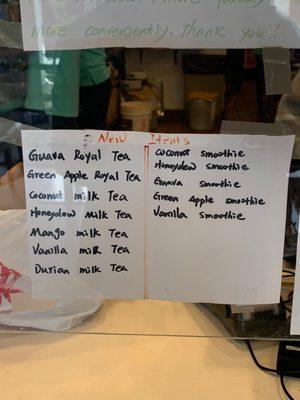 more conveniently. Thank you!
New Items
Guava Royal Tea
Green Apple Royal Tea
Coconut milk Tea
Honeydew Milk Tea
Mango milk Tea
Vanilla milk Tea
Durian milk Tea
Coconut smoothie
Honeydew smoothie
Guava smoothie
Green Apple smoothie
Vanilla smoothie